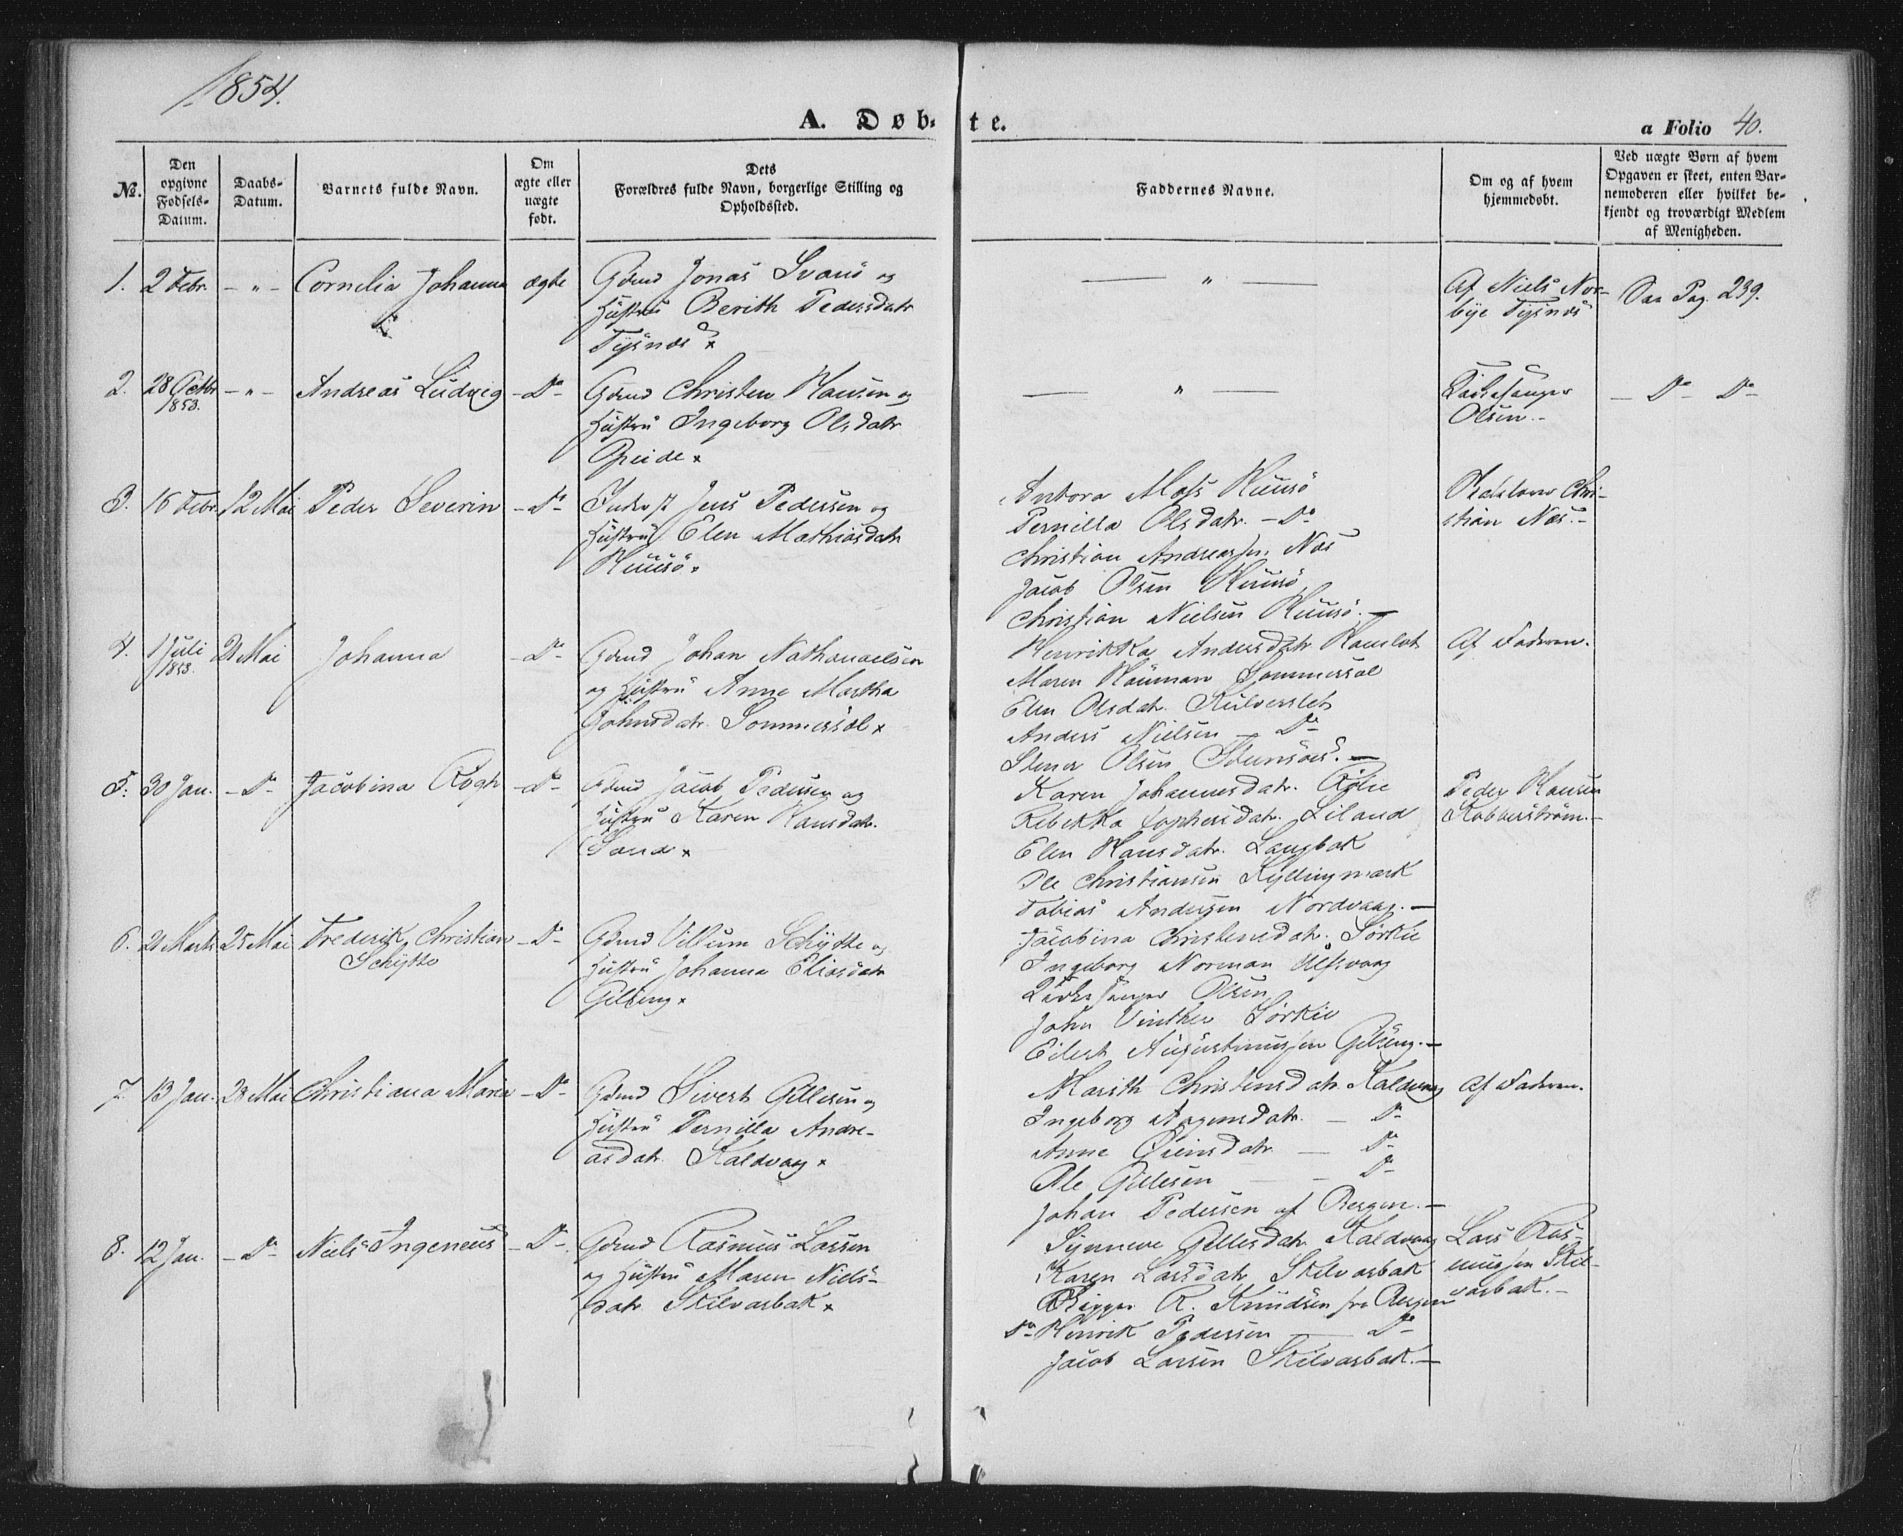 1854.
A. Døbte.
a Folio 40.
No.
Den opgivne Fødsels-Datum.
Daabs-Datum.
Barnets fulde Navn.
Om ægte eller uægte født.
Dets Forældres fulde Navn, borgerlige Stilling og Opholdssted.
Faddernes Navne.
Om og af hvem hjemmedøbt.
Ved uægte Børn af hvem Opgaven er skeet, enten Barnemoderen eller hvilket bekjendt og troværdigt Medlem af Menigheden.
1. 2 Febr. - " - Cornelia Johanna ægte
Gdmd Jonas Svanö og
Hustru Berith Pedersdatr
Tysnæs
— " —
Af Niels Nor-
bye Tysnæs
Saa Pag. 239.
2. 28 Octbr 1853. - " - Andreas Ludvig - Do -
Gdmd Christen Hansen og
Hustru Ingeborg Olsdatr
— " —
Kirkesanger
Olsen.
- Do - Do
3. 16 Febr. 12 Mai Peder Severin - Do -
Jens Pedersen og
Hustru Elen Mathiasdatr
Huusö
Mass Huusö
Pernilla Olsdatr. - Do
Christian Andreassen Næs
Jacob Olsen Huusö
Christian Nielsen Huusö. -
Chri-
stian Næs. -
4. 1 Juli 1853. 21 Mai Johanna - Do -
Gdmd Johan Nathanaelsen
og Hustru Anne Martha
Johnsdatr. Sommersæl
Henrikka Andersdatr
Maren Sommersæl
Elen Olsdatr. Kulverslet
Anders Nielsen - Do
Olsen
Af Faderen.
5. 30 Jan. - Do - Jacobina - Do -
Gdmd Jacob Pedersen og
Hustru Karen Hansdatr.
Sand
Karen Johannesdatr.
Rebekka Liland
Elen Hansdatr. Langbak
Ole Christiansen Kyllingmark
Tobias Andersen Nordvaag. -
Peder Hansen
6. 21 Marts 25 Mai Frederik Christian Schytte - Do -
Gdmd Villum Schytte og
Hustru Johanna Eliasdatr
Gilseng
Jacobina Christensdatr. Sörkil
Ingeborg Norman Ulfsvaag
Kirkesanger Olsen
John Vinther Sörkil
Eilert Augustinussen Gilseng. -
7. 13 Jan. 28 Mai Christiana Maria - Do -
Gdmd Sivert Gillesen og
Hustru Pernilla Andre-
asdatr. Kaldvaag
Marith Christensdatr. Kaldvaag
Ingeborg Aagensdatr. - Do
Anne - Do
Ole Gillesen - Do
Johan Pedersen af Bergen. -
Af Faderen.
8. 12 Jan. - Do - Niels Ingeneus - Do -
Gdmd Rasmus Larsen
og Hustru Maren Niels-
datr. Skilvasbak
Synneve Gillesdatr. Kaldvaag
Karen Larsdatr. Skilvasbak
R. Knudsen fra Bergen
Do Henrik Pedersen - Do
Jacob Larsen Skilvasbak. -
Lars Ras-
mussen Skil-
vasbak. -